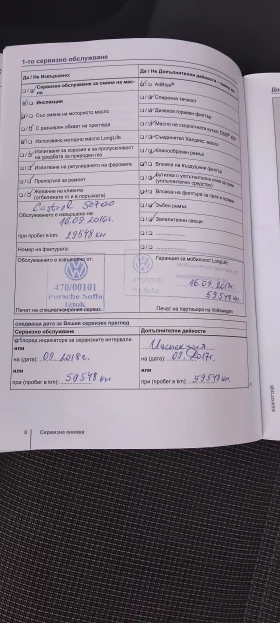 1-то сервизно обслужване
Да / Не Извършено:
Да / Не Допълнителни дейности
Сервизно обслужване за смяна на масло
AdBlue®
Инспекция
Спирачна течност
Със смяна на моторното масло
Дизелов горивен филтър
С разширен обхват на прегледа
Масло на скоростната кутия DSG
Използвано моторно масло LongLife
Съединител Халдекс масло
Изпитване за корозия и за пропускливост на уредбата за природен газ
Клинообразен ремък
Изпитване на регулирането на фаровете
Вложка на въздушния филтър
Препоръка за ремонт
Бутилка с уплътнително
(уплътнително средство)
Желание на клиента
(отбележете го и в поръчката)
Вложка на филтъра за прах и полени
Зъбен ремък
Обслужването е извършено на:
16.09.2016г.
Запалителни свещи
при пробег в km: 29548 км
Номер на фактурата:
Обслужването е извършено от:
Гаранция за мобилност LongLife
470/00101
Porsche Sofia
Iztok
16.09.2017г.
59548 км
Печат на специализирания сервиз
Печат на партньора на Volkswagen
следваща дата за Вашия сервизен преглед
Сервизно обслужване
Допълнителни дейности
Според индикатора за сервизните интервали
Инспекция
или
на (дата): 09.2018г.
на (дата): 09.2017г.
или
или
при (пробег в km): 59548 км
при (пробег в km): 59548 км
8 Сервизна книжка